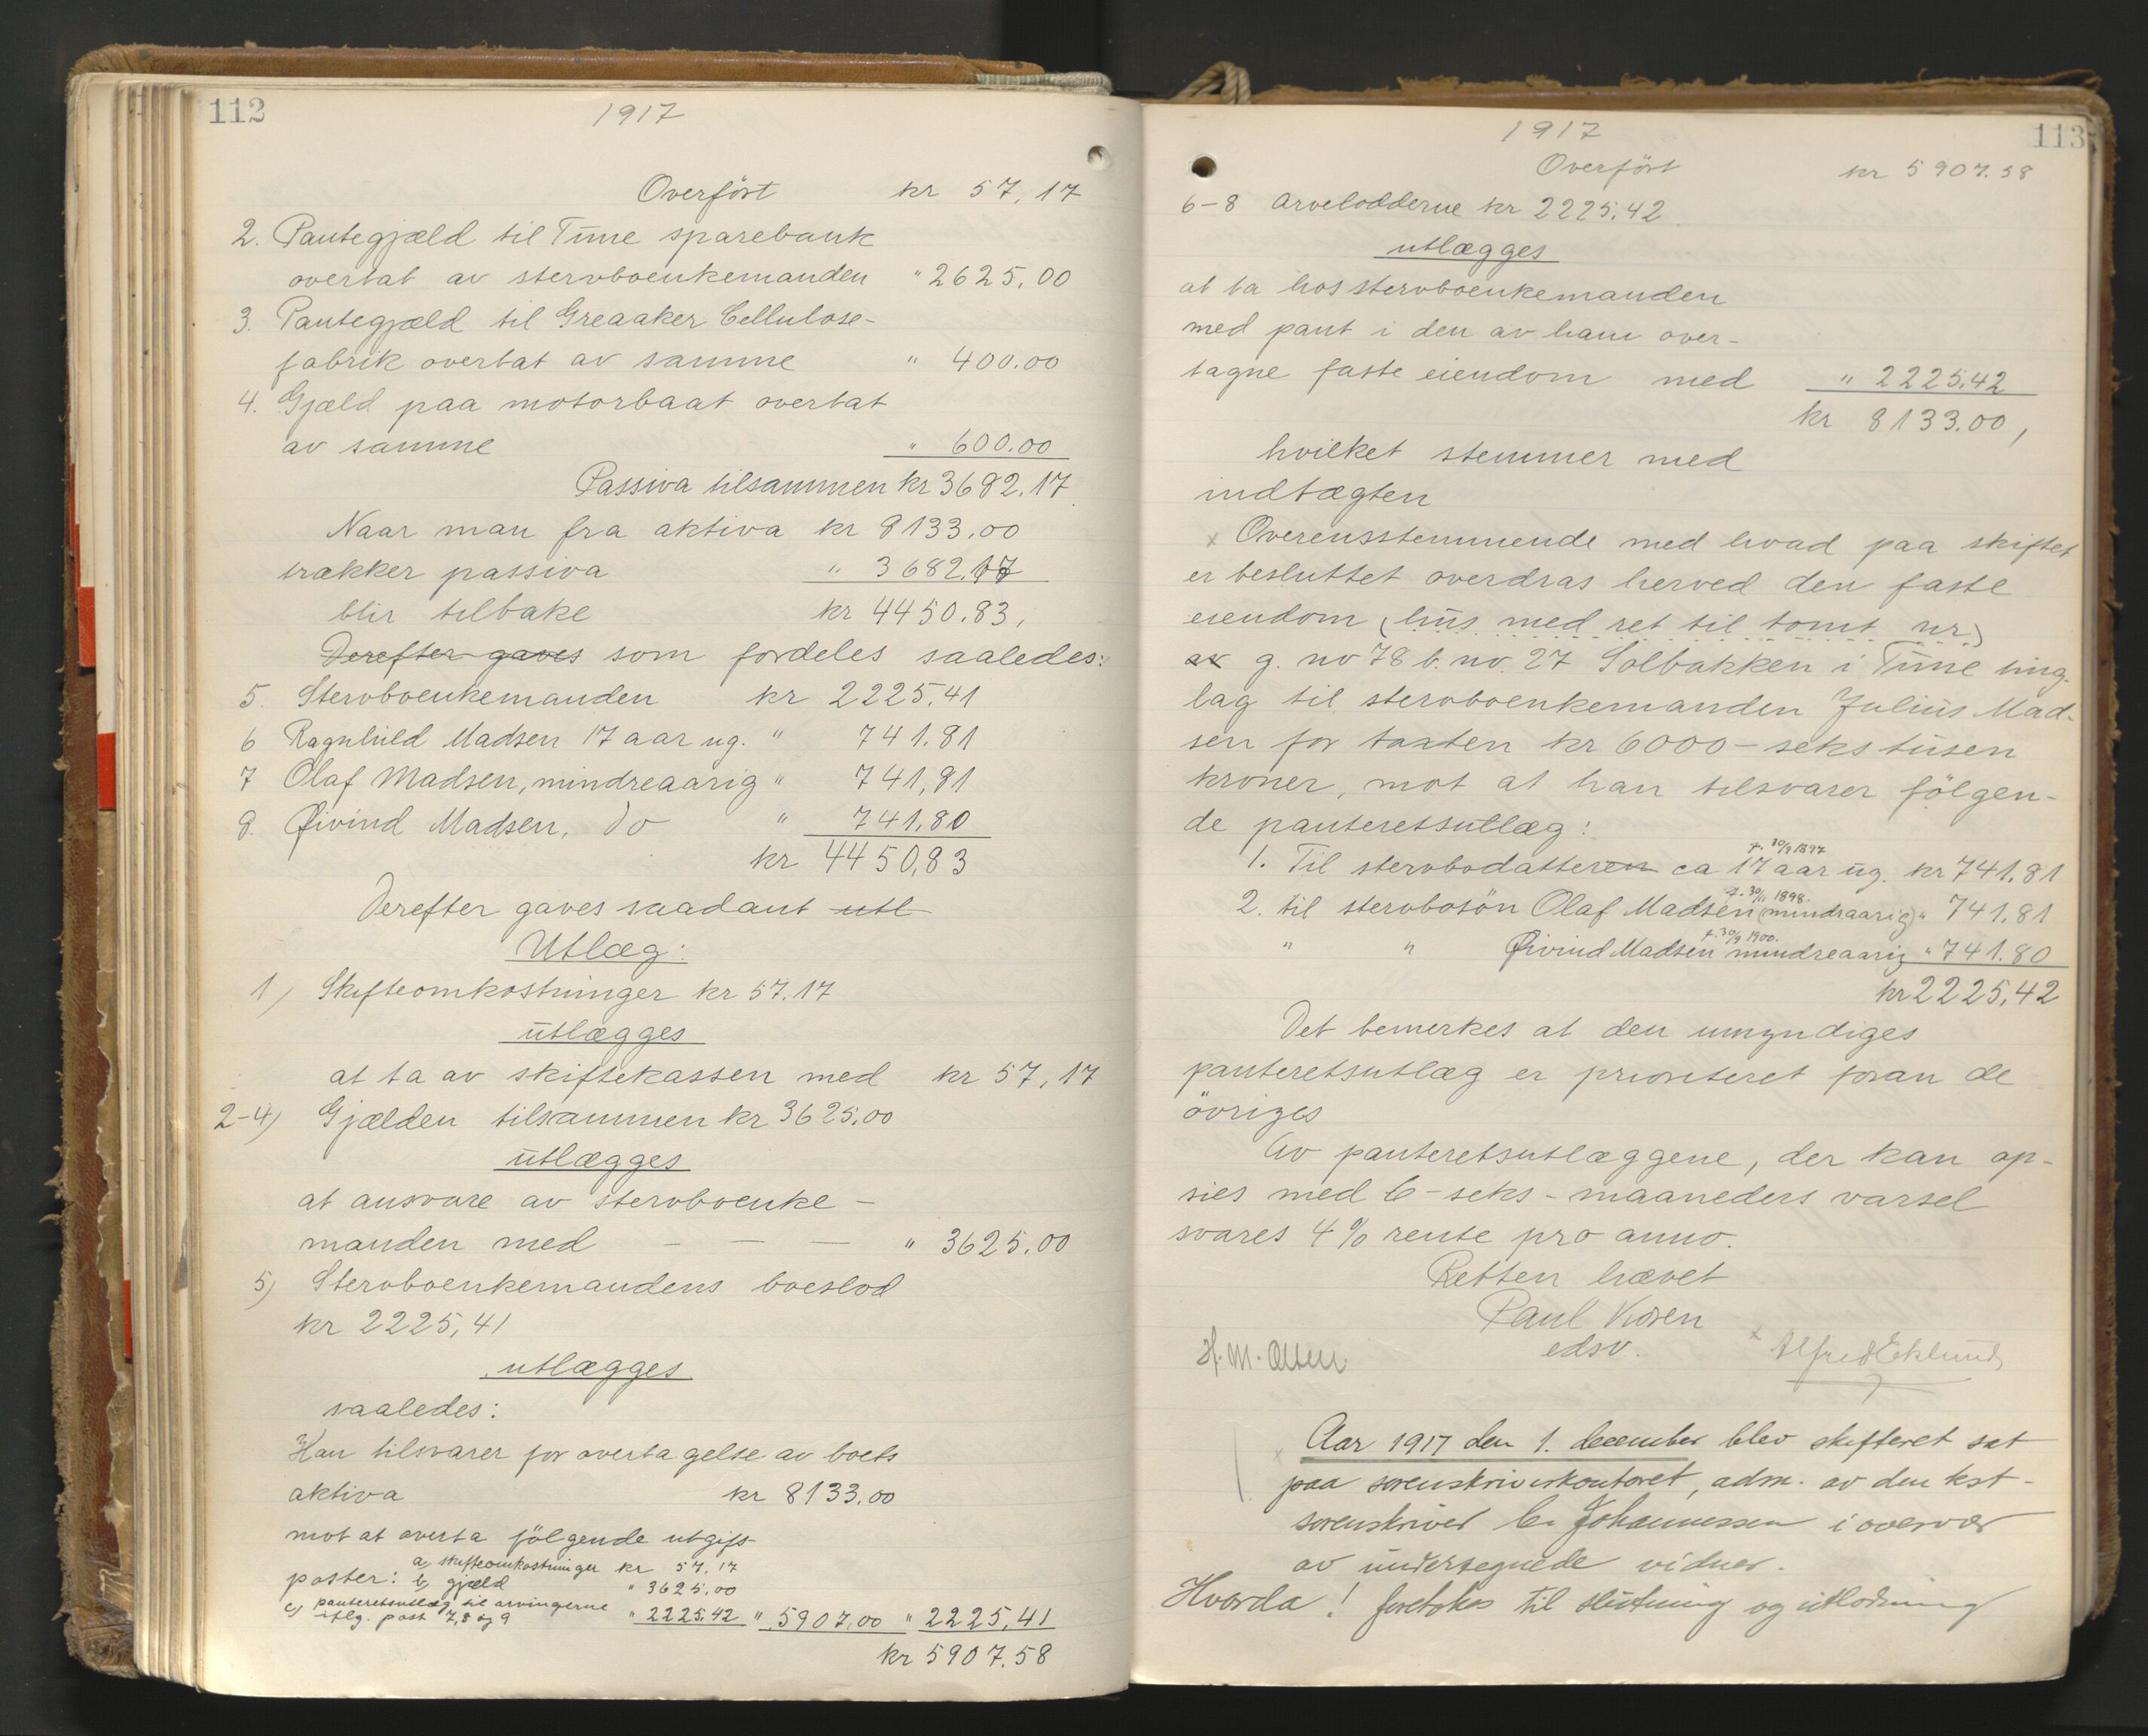 112
1917
Overført kr 57,17
2. Pantegjæld til Tune sparebank
overtat av stervboenkemanden " 2625,00
3. Pantegjæld til Greaaker Cellulose-
fabrik overtat av samme " 400.00
4. Gjæld paa motorbaat overtat
av samme " 600.00
Passiva tilsammen kr 3682.17
Naar man fra aktiva kr 8133,00
trækker passiva " 3682.17
blir tilbake kr 4450.83,
Derefter gaves som fordeles saaledes:
5. Stervboenkemanden kr 2225,41
6 Ragnhild Madsen 17 aar ug. " 741.81
7 Olaf Madsen, mindreaarig " 741,81
8. Øivind Madsen, do " 741,80
kr 4450,83
Derefter gaves saadant utl
Utlæg:
1) Skifteomkostninger kr 57.17
utlægges
at ta av skiftekassen med kr 57,17
2-4) Gjælden tilsammen kr 3625,00
utlægges
at ansvare av stervboenke-
manden med — — — " 3625,00
5) Stervboenkemandens boeslod
kr 2225,41
utlægges
saaledes:
Han tilsvarer for overtagelse av boets
aktiva kr 8133,00
mot at overta følgende utgifs-
poster: a, skifteomkostninger kr 57,17
b, gjæld " 3625,00
c, panteretsutlæg til arvingerne
iflg. post 7,8 og 9 " 2225,42 " 5907,00 " 2225,41
kr 5907.58
113
1917
Overført kr 5907.58
6-8 arvelodderne kr 2225,42
utlægges
at ta hos stervboenkemanden
med pant i den av ham over-
tagne faste eiendom med " 2225,42
kr 8133.00,
hvilket stemmer med
indtægten
x Overensstemmende med hvad paa skiftet
er besluttet overdras herved den faste
eiendom (hus med ret til tomt nr)
av g. no 78 b. no. 27 Solbakken i Tune ting-
lag til stervboenkemanden Julius Mad-
sen for taxten kr 6000 - seks tusen
kroner, mot at han tilsvarer følgen-
de panteretsutlæg:
f. 30/9 1897
1. Til stervbodatteren ca 17 aar ug. kr 741,81
f. 30/11 1898.
2. til stervbosøn Olaf Madsen (mindraarig) " 741,81
f. 30/9 1900.
" " Øivind Madsen mindreaarig " 741.80
kr 2225,42
Det bemerkes at den umyndiges
panteretsutlæg er prioriteret foran de
øvriges
Av panteretsutlæggene, der kan op-
sies med 6 - seks - maaneders varsel
svares 4% rente pro anno.
Retten hævet
Paul Koren
edsv.
H. M. Olsen
x Alfred Eklund
x Aar 1917 den 1. december blev skifteret sat
paa sorenskriverkontoret, adm. av den kst-
sorenskriver C. Johannessen i overvær
av undertegnede vidner.
Hvorda! foretokes til slutning og utlodning